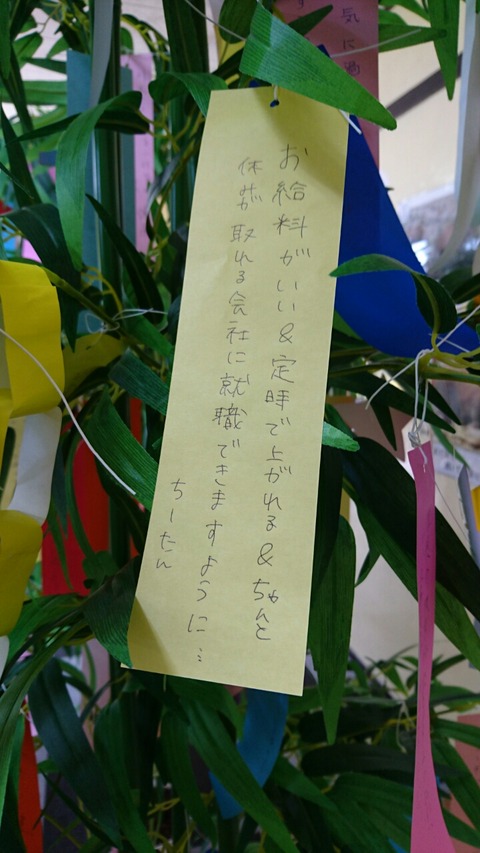 お給料がいい&定時で上がれる&ちゃんと
休みが取れる会社に就職できますように…
ちーたん
気に過